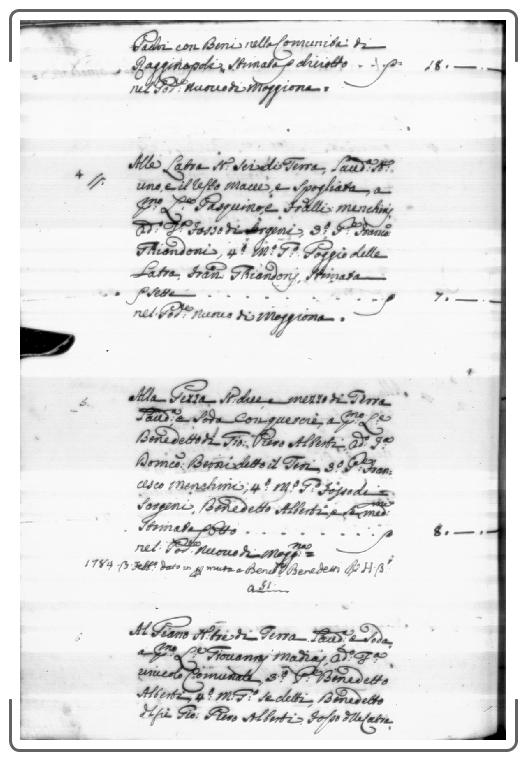 Padri con Beni nella Comunità di
Ragginopoli, Stimata p diciotto - - p 18. —
nel Pod.e Nuovo di Moggiona.
4 Alle Latra St. sei di Terra, Laud.a St.
uno, e il resto macie, e Spogliata, a
p.mo L.e Pasquino, e Fr̃alli Menchini,
ad. 2.o Fosso di Sorgeni, 3.o P.e Franco
Ghiandoni, 4.o M.o P.o Poggio delle
Latra, Fran. Ghiandoni, Stimata
p sette - - - - - - - - - p 7. —
nel Pod.e Nuovo di Moggiona.
5 Alla Pezza St. due e mezzo di Terra
Laud.a e Soda con querce, a p.mo L.e
Benedetto di Gio: Piero Alberti, ad. 2.o
Domco: Berni detto il Teri, 3.o P.e Fran=
cesco Menchini, 4.o M.o P.o Fosso di
Sorgeni, Benedetto Alberti, e se med.mi
Stimata p otto - - - - - - - p 8. —
nel Pod.e Nuovo di Mogg.na =
1784 13 Febb.o dato in a Bened.o Benedetti
a 51
6 Al Piano St. tre di Terra Laud.a e Soda,
a p.mo L.e Giovanni Mattia, ad. 2.o
vincolo Comunale, 3.o P.e Benedetto
Alberti, 4.o M.o P.o se detti, Benedetto
di Gio: Piero Alberti, Fosso delle Latra